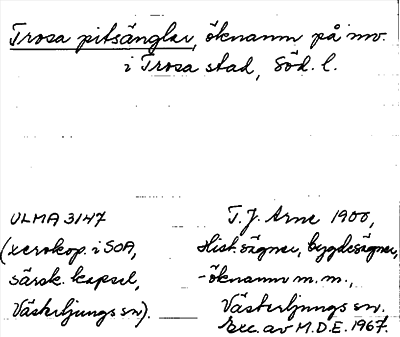 Trosa pitsänglar, öknamn på inv.
i Trosa stad, Söd. l.
ULMA 3147
(xerokop. i SOA,
särsk. kapsel,
Västerljungs sn).
T. J. Arne 1900,
Hist. sägner, bygdesägner,
-öknamn m.m.,
Västerljungs sn.
Exc. av M.D.E. 1967.